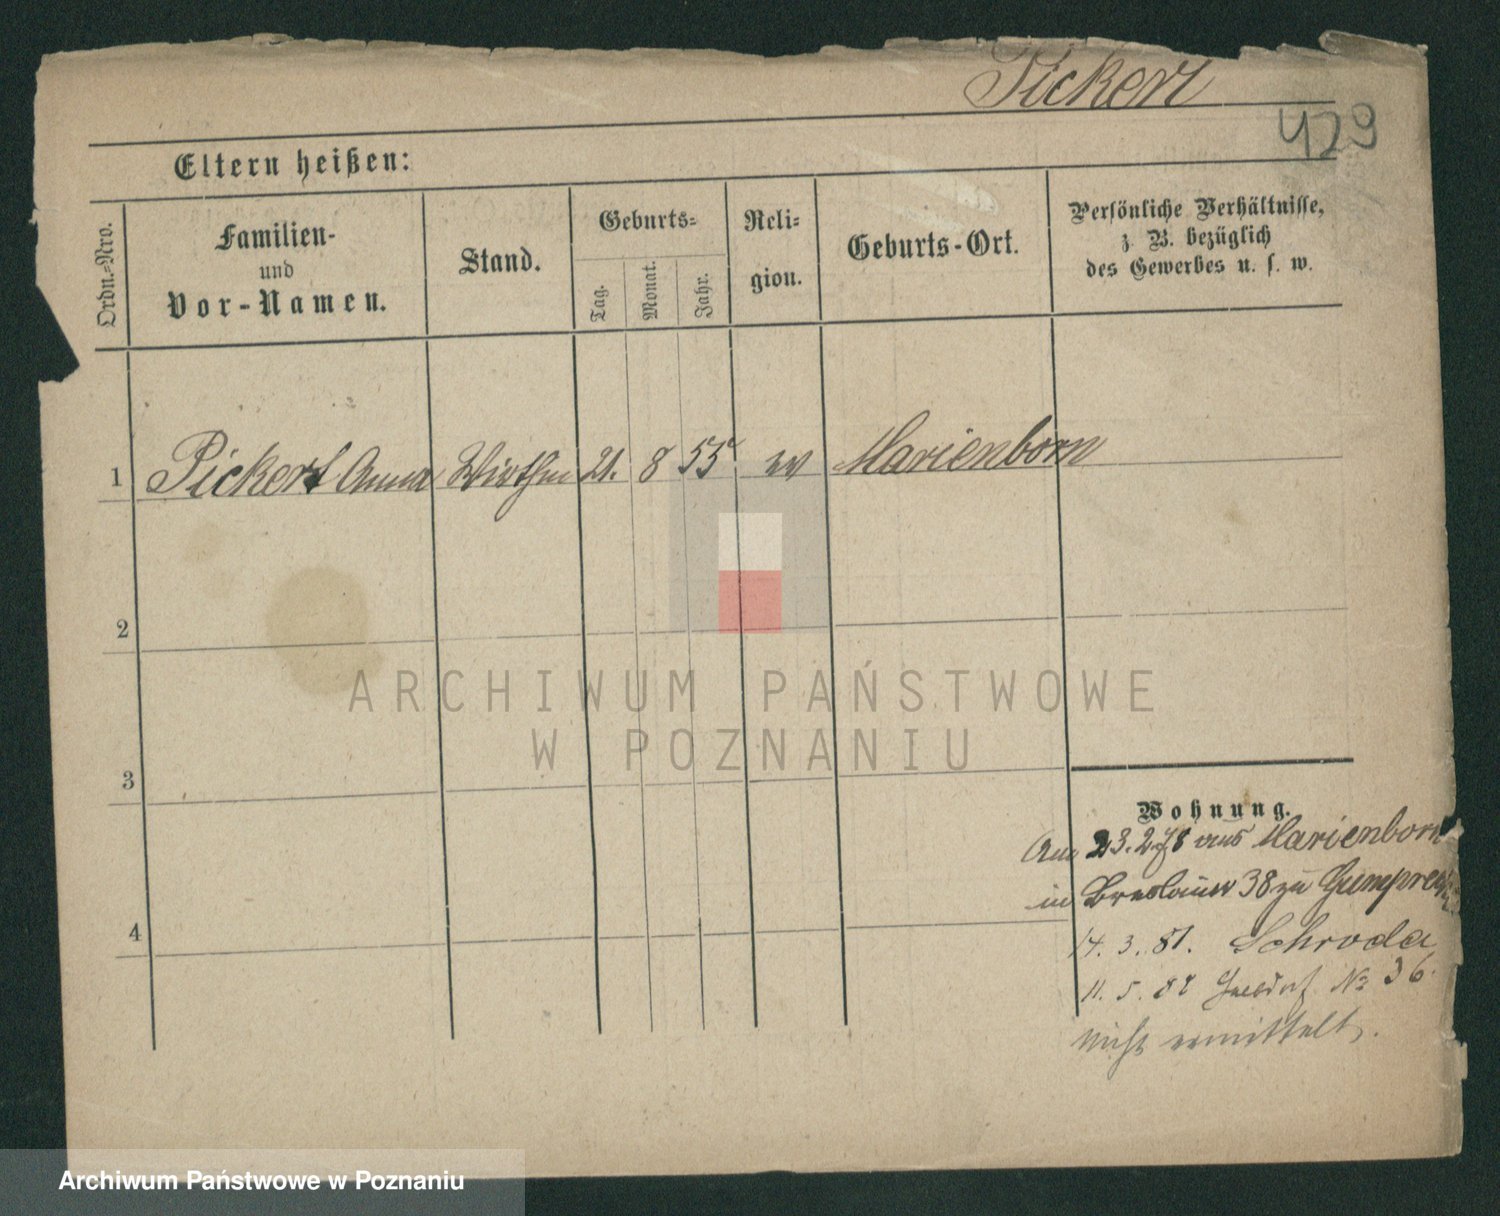 Pickert
429
Eltern heißen:
Ordn.-Nro.
Familien-
und
Vor-Namen.
Stand.
Geburts-
Tag.
Monat.
Jahr.
Reli-
gion.
Geburts-Ort.
Persönliche Verhältnisse,
z. B. bezüglich
des Gewerbes u. s. w.
1 Pickert Anna Wirthin 21. 8 55 ev Marienborn
2
3
4
Wohnung.
Am 23.2.78 aus Marienborn
in Breslauer 38 zu
14. 3. 81. Schroda
11. 5. 82 № 36.
nicht ermittelt.
ARCHIWUM PAŃSTWOWE
W POZNANIU
Archiwum Państwowe w Poznaniu